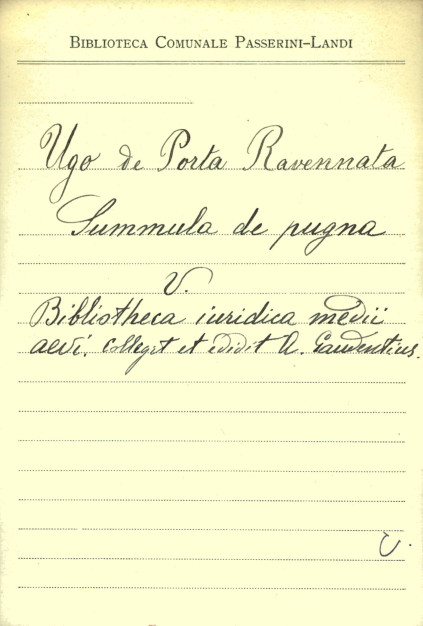 BIBLIOTECA COMUNALE PASSERINI-LANDI
Ugo de Porta Ravennata
Summula de pugna
V.
Bibliotheca iuridica medii
aevi. Collegit et edidit A. Gaudentius.